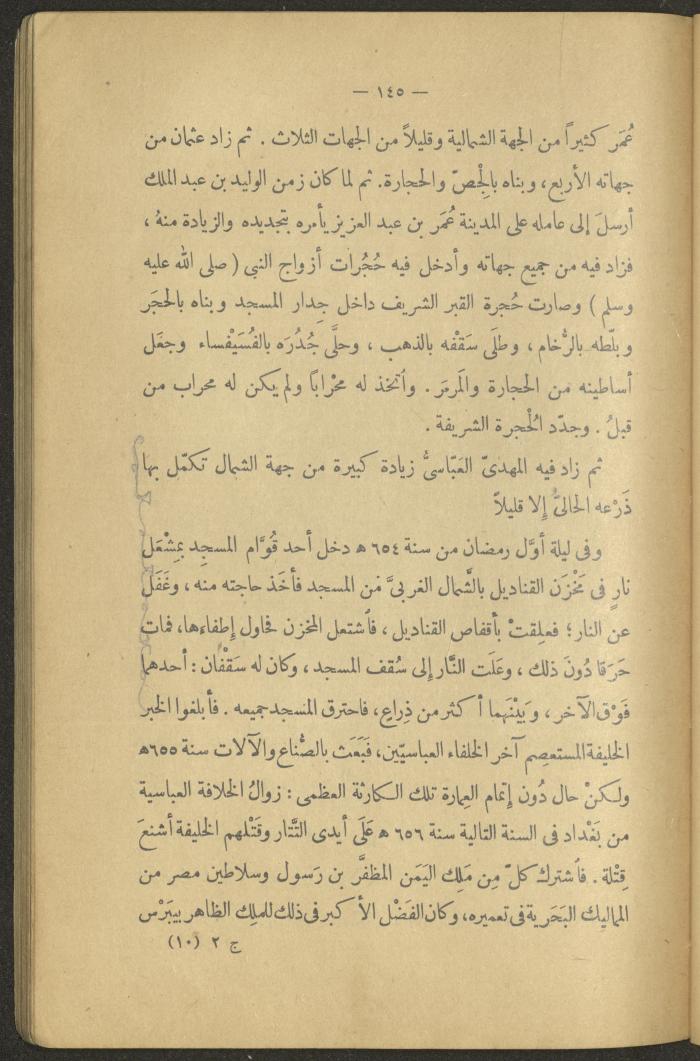 — ١٤٥ —
عُمَر كثيراً من الجهة الشمالية وقليلاً من الجهات الثلاث . ثم زاد عثمان من
جهاته الأربع، وبناه بالجِصّ والحجارة. ثم لما كان زمن الوليد بن عبد الملك
أرسلَ إلى عامله على المدينة عُمَر بن عبد العزيز يأمره بتجديده والزيادة منهُ ،
فزاد فيه من جميع جهاته وأدخل فيه حُجُرات أزواج النبي ( صلى الله عليه
وسلم ) وصارت حُجرة القبر الشريف داخل جدار المسجد وبناه بالحجَر
وبلّطه بالرُّخام ، وطلَى سَقْفه بالذهب ، وحلَّى جُدُرَه بالفُسَيْفساء وجعَل
أساطينه من الحجارة والمَرمَر . واتخذ له محْراباً ولم يكن له محراب من
قبلُ . وجدّد الحُجرة الشريفة .
ثم زاد فيه المهدىّ العَبّاسىُّ زيادة كبيرة من جهة الشمال تكمّل بها
ذَرْعه الحالىُّ إِلا قليلاً
وفى ليلة أوَّل رمضان من سنة ٦٥٤ ه دخل أحد قُوَّام المسجِد بمِشْعَل
نارٍ فى مَخْزَن القناديل بالشَّمال الغربىّ من المسجد فأخَذ حاجته منه ، وغَفَلَ
عن النار؛ فعلِقتْ بأقفاص القناديل ، فاشتعل المخزن فحاول إِطفاءها، فمات
حَرَقا دُونَ ذلك ، وعَلَت النَّار إلى سُقف المسجد ، وكان له سَقْفان : أحدهما
فَوْق الآخر ، وبَيْنَهما أكثر من ذِراعٍ، فاحترق المسجد جميعه . فأبلغوا الخبر
الخليفة المستعصِم آخر الخلفاء العباسيّين، فَبَعَث بالصُّناع والآلات سنة ٦٥٥ه
ولكنْ حال دُون إتمام العِمارة تلك الكارثة العظمى : زوالُ الخلافة العباسية
من بَغْداد فى السنة التالية سنة ٦٥٦ ه عَلَى أيدى التَّتار وقَتْلهم الخليفة أشنعَ
قِتْلة . فاشترك كلّ مِن مَلِك اليَمن المظفَّر بن رَسول وسلاطين مصر من
المماليك البَحَرية فى تعميره، وكان الفَضْل الأكبر فى ذلك للملِك الظاهر بيبَرْس
ج ٢ (١٠)